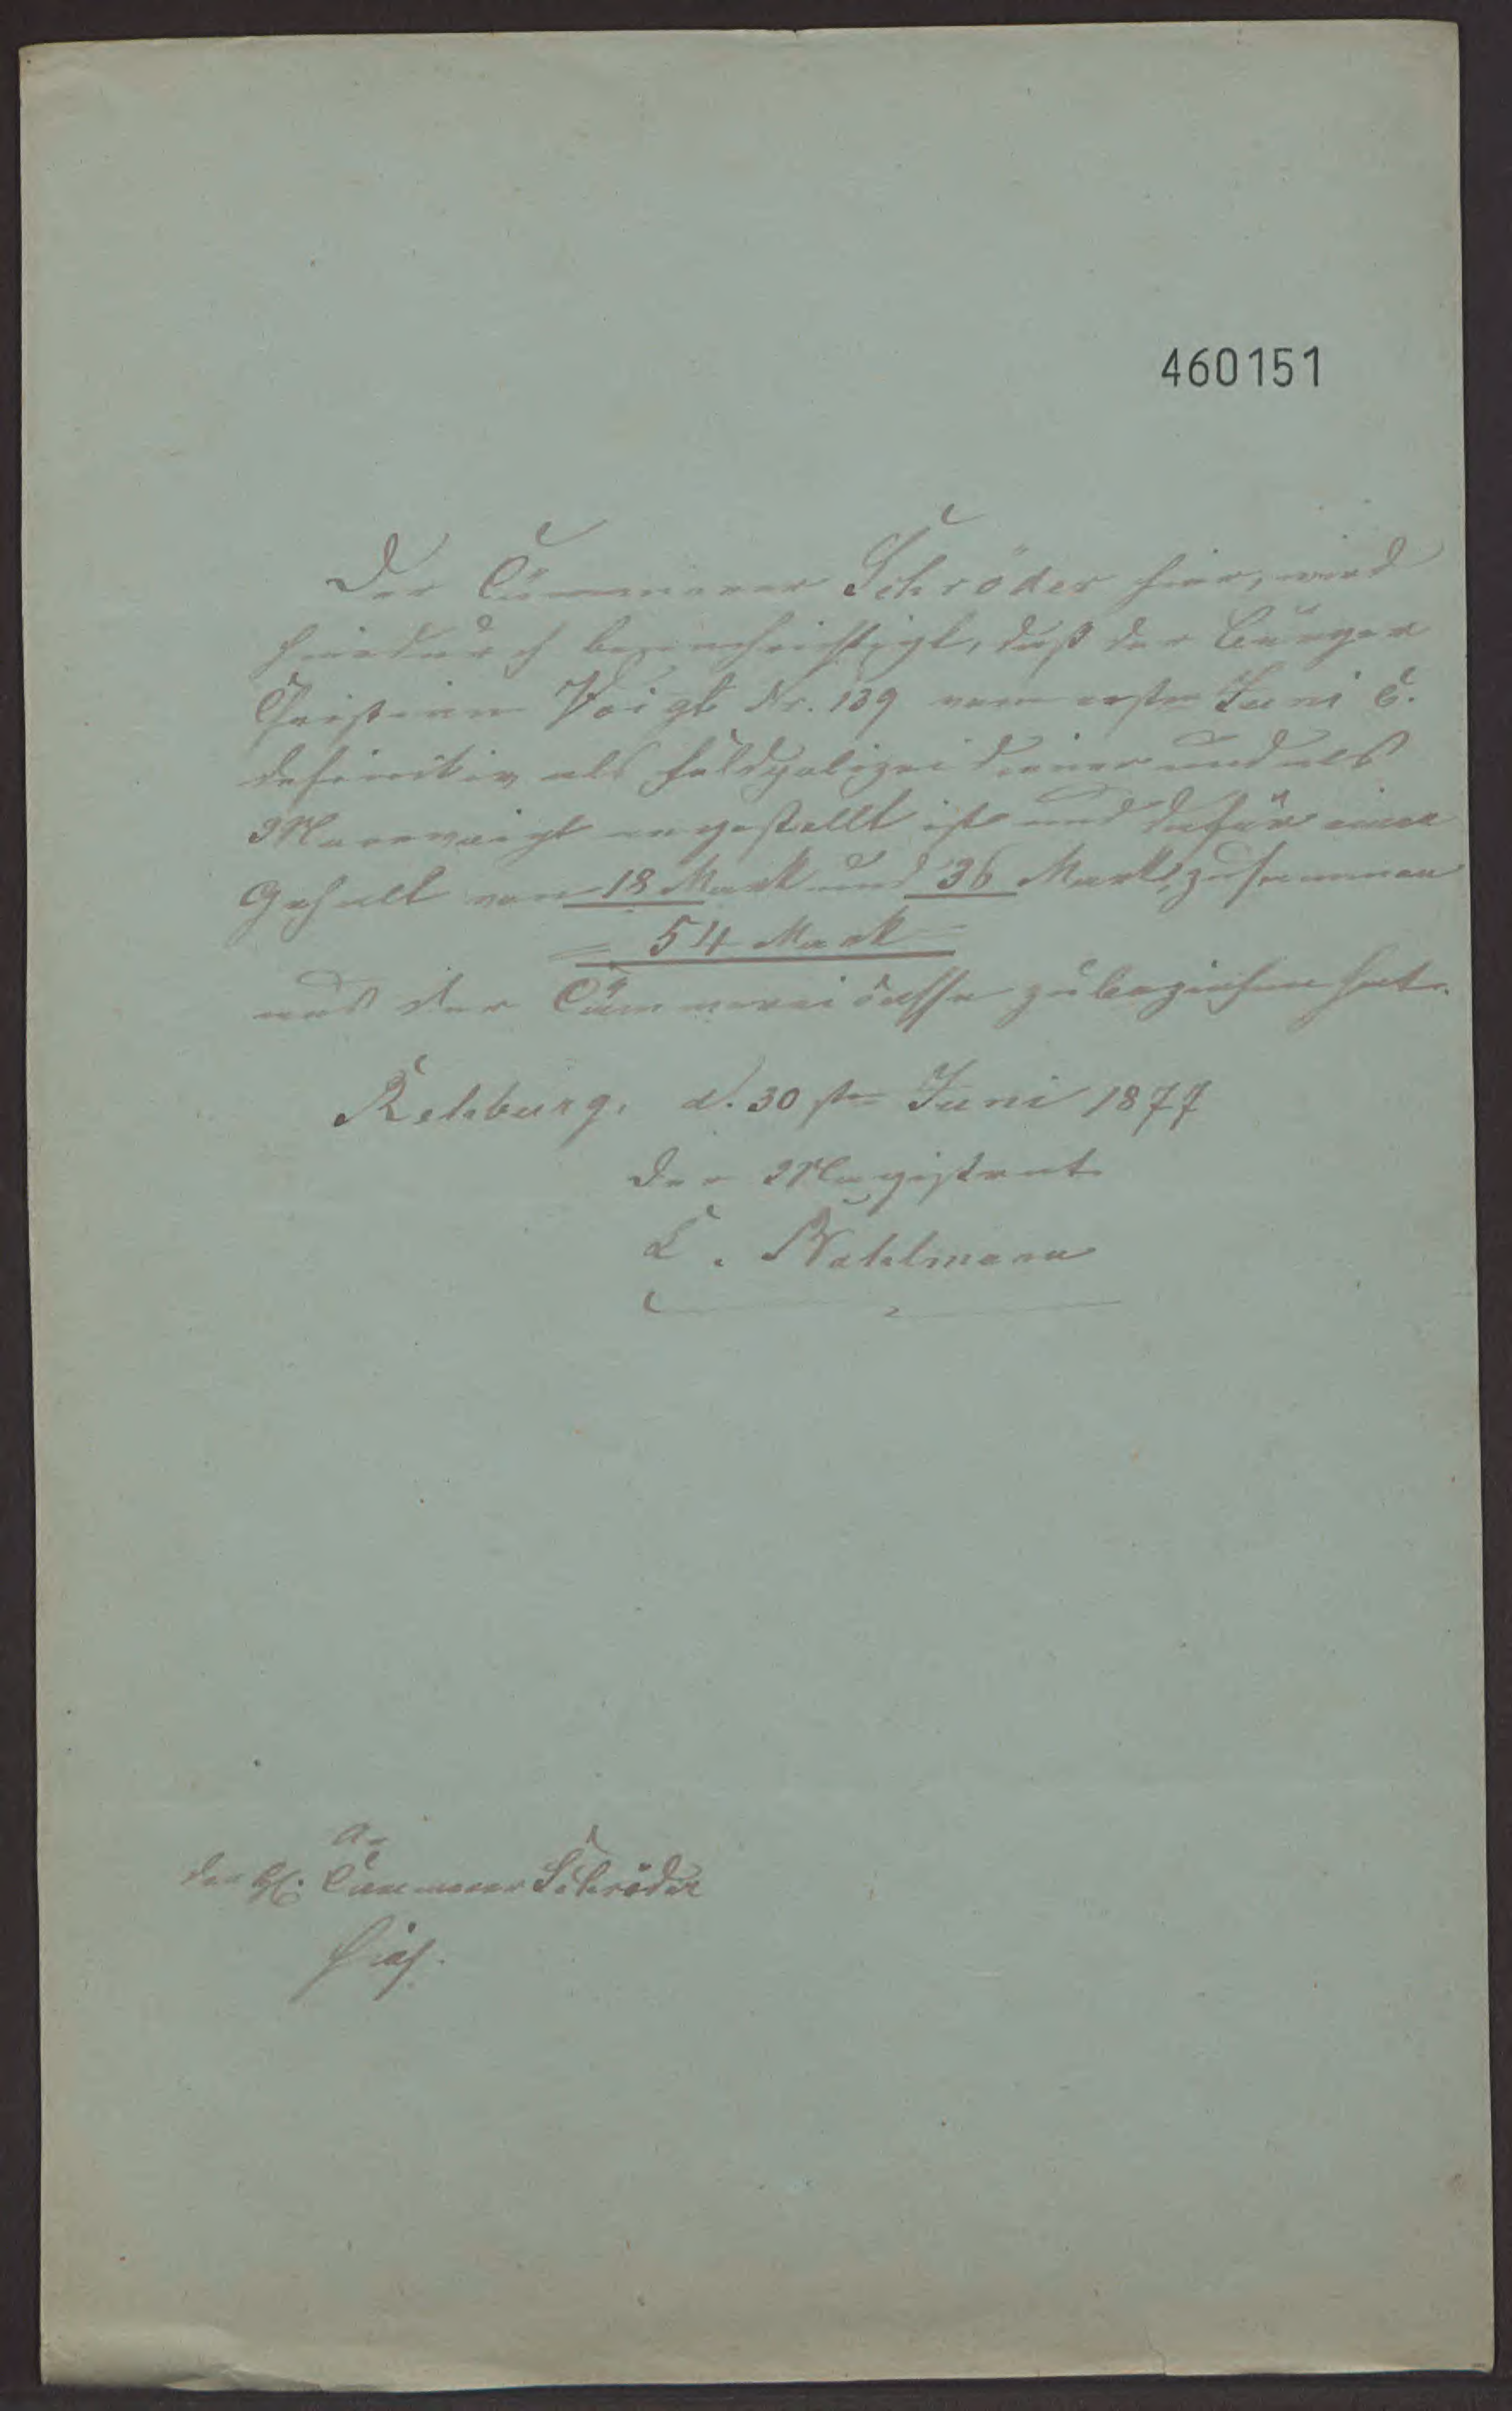 460151
Der Cämmerer Schröder hier, wird
hiedurch benachrichtigt, daß der Bürger
Christian Voigt Nr. 139 vom ersten Juni c.
definitiv als Feldpolizeidiener und als
angestellt ist und dafür einen
Gehalt von 18 Mark und 36 Mark, zusammen
= 54 Mark =
aus der Cämmereicasse zu beziehen hat.
Rehburg, d. 30 sten Juni 1877
Der Magistrat
Mahlmann
An
den H. Cämmerer Schröder
hies.